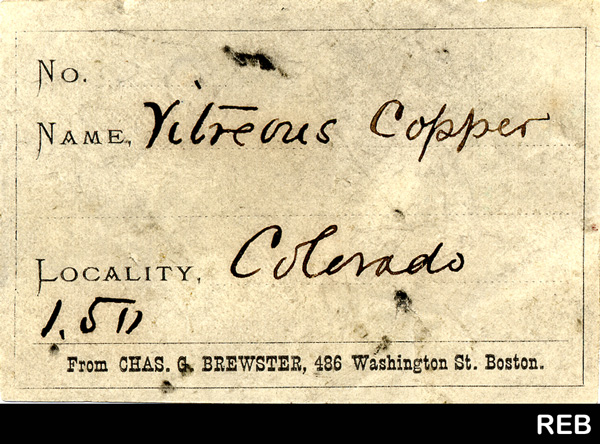 No.
NAME, Vitreous Copper
LOCALITY, Colorado
1.50
From CHAS. G. BREWSTER, 486 Washington St. Boston.
REB